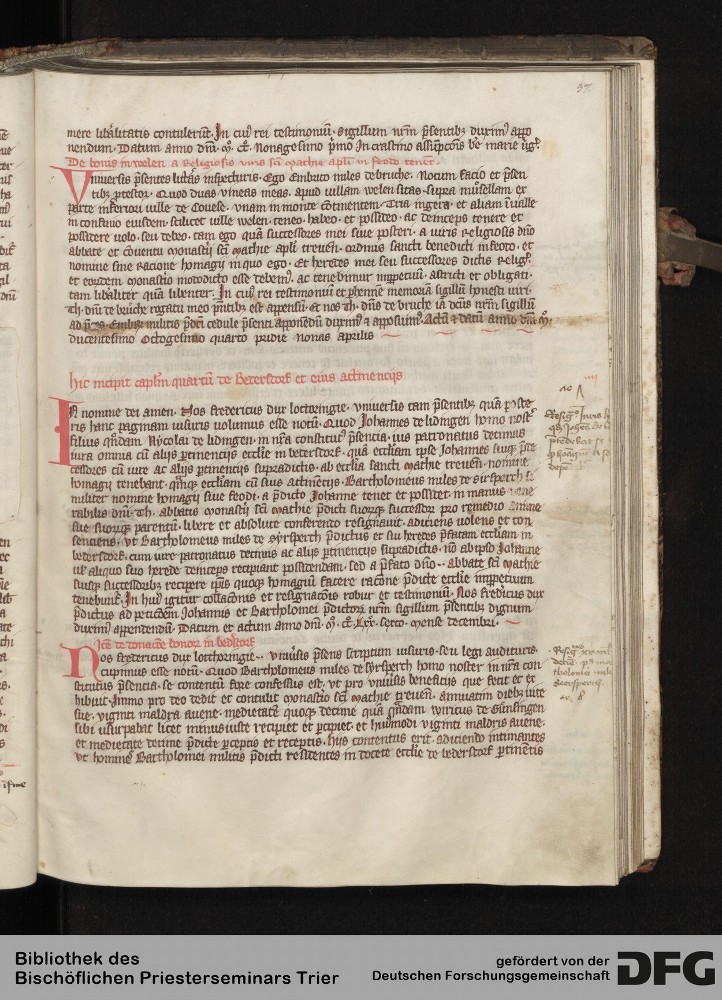 37
mere libalitatis contulerūt. In cuiꝰ rei testimoniū. sigillum nrm p̄sentibꝫ duximꝰ appo
nendum. Datum anno dnī. m̊. cͨ. nonagesimo p̄mo In crastino assūpcōnis be marie ūgꝭ.
De bonis in welen a Religiosis viris sci mathie apli in feodo tenet.
Vniuersis p̄sentes lutas inspecturis. Ego Embrico miles de bruche. Notum facio et p̄sen
tibꝫ ptestor. Quod duas vineas meas. apud villam welen sitas. supra musellam ex
parte inferiori ville de Couese. vnam in monte ꝯtinentem. Tria iugera. et aliam ī valle
in confinio eiusdem. scilicet ville welen. teneo. habeo. et possideo. ac deinceps tenere et
possidere volo. seu debeo. tam ego quā successores mei siue posteri. a viris religiosis dnō
abbate et cōuentu monastij sci mathie apli treuen. ordinis sancti benedicti in feoto. et
nomine siue racione homagij in quo ego. Et heredes mei seu successores dictis religꝭ.
et eordem monastio motodicto esse debemꝰ. ac tenebimur imppetuū. astricti et obligati.
tam libaliter quā libenter. In cuiꝰ rei testimoniū et phennē memoriā sigillū honesti viri.
Th. dnī de bruche rogatu meo p̄ntibꝫ est appensū. Et nos Th. dn̄s de bruche iā dcūs nrm sigillū
ad p̄ces Embꝭ militis p̄dcī cedule p̄senti apponendū duximꝰ ⁊ apposuimꝰ. Actū ⁊ datū anno dnī m̊.
ducentesimo Octogesimo quarto pridie nonas aprilis
hic incipit caplm quartū de Betersdorf et eius attinencijs
In nomine dei amen. Nos fredericus dux lotringie. vniuersis tam p̄sentibꝫ quā poste
ris hanc paginam visuris volumus esse notū. Quod Johannes de lidingen homo noster
filius qn̄dam Nycolai de lidingen. in nrā constitutꝰ p̄sentia. ius patronatus decimas
iura omnia cū alijs ptinencijs ecclie in betersdorf. quā eccliam ipse Johannes suiqꝫ p̄de
cessores cū iure ac alijs ptinencijs supradictis. ab ecclia sancti mathie treuen. nomine
homagij tenebant. qūqꝫ eccliam cū suis attinencijs. Bartholomeus miles de sirsperch si
militer nomine homagij siue feodi. a p̄dicto Johanne tenet et possidet. in manus vene
rabilis dnī. Th. abbatis monastij sci mathie p̄dicti suorqꝫ successor pro remedio anime
sue suorqꝫ parentū. libere et absolute conferendo resignauit. adiciens volens et con
senciens. vt Bartholomeus miles de syrsperch p̄dictus et sui heredes p̄fatam eccliam in
bedersdorf. cum iure patronatus decimis ac alijs ptinencijs supradictis. nō ab ipso Johanne
ul aliquo suo herede deinceps recipiant possidendam. sed a p̄fato dnō.. abbate sci mathie
suisqꝫ successoribꝫ recipere ipis quoqꝫ homagiū facere racōne p̄dicte ecclie imppetuum
tenebunt. In huiꝰ igitur collacōnis et resignacōnis robur et testimoniū. Nos fredicus dux
p̄dictus ad peticōem Johannis et Bartholomei p̄dictor nrm sigillum p̄sentibꝫ dignum
duximꝰ appendendū. Datum et actum anno dnī. m̊. cͨ. Lxx. sexto. mense decembri.
Itē de donacōe bonor in bedsdorf
Nos fredericus dux lotthoringie.. vniūsis p̄sens scriptum visuris. seu legi audituris.
cupimus esse notū. Quod Bartholomeus miles de syrsperch homo noster in nrā con
stitutus p̄sentia. se contentū fore confessus est. vt pro vniūsis beneficijs que fecit et ex
hibuit. Immo pro deo dedit et contulit monastio sci mathie treuen. annuatim diebꝫ vite
sue. viginti maldra auene. medietatē quoqꝫ decime quā qn̄dam wiricus de Gunsingen
sibi vsurpabat licet minus iuste recipiet et pcipiet. et huiꝰmodi viginti maldris auene.
et medietate decime p̄dicte pceptis et receptis. hijs contentus erit. adiciendo intimantes
vt homines Bartholomei militis p̄dicti residentes in docete ecclie de bedersdorf ptinētis
Bibliothek des
Bischöflichen Priesterseminars Trier
gefördert von der
Deutschen Forschungsgemeinschaft
DFG